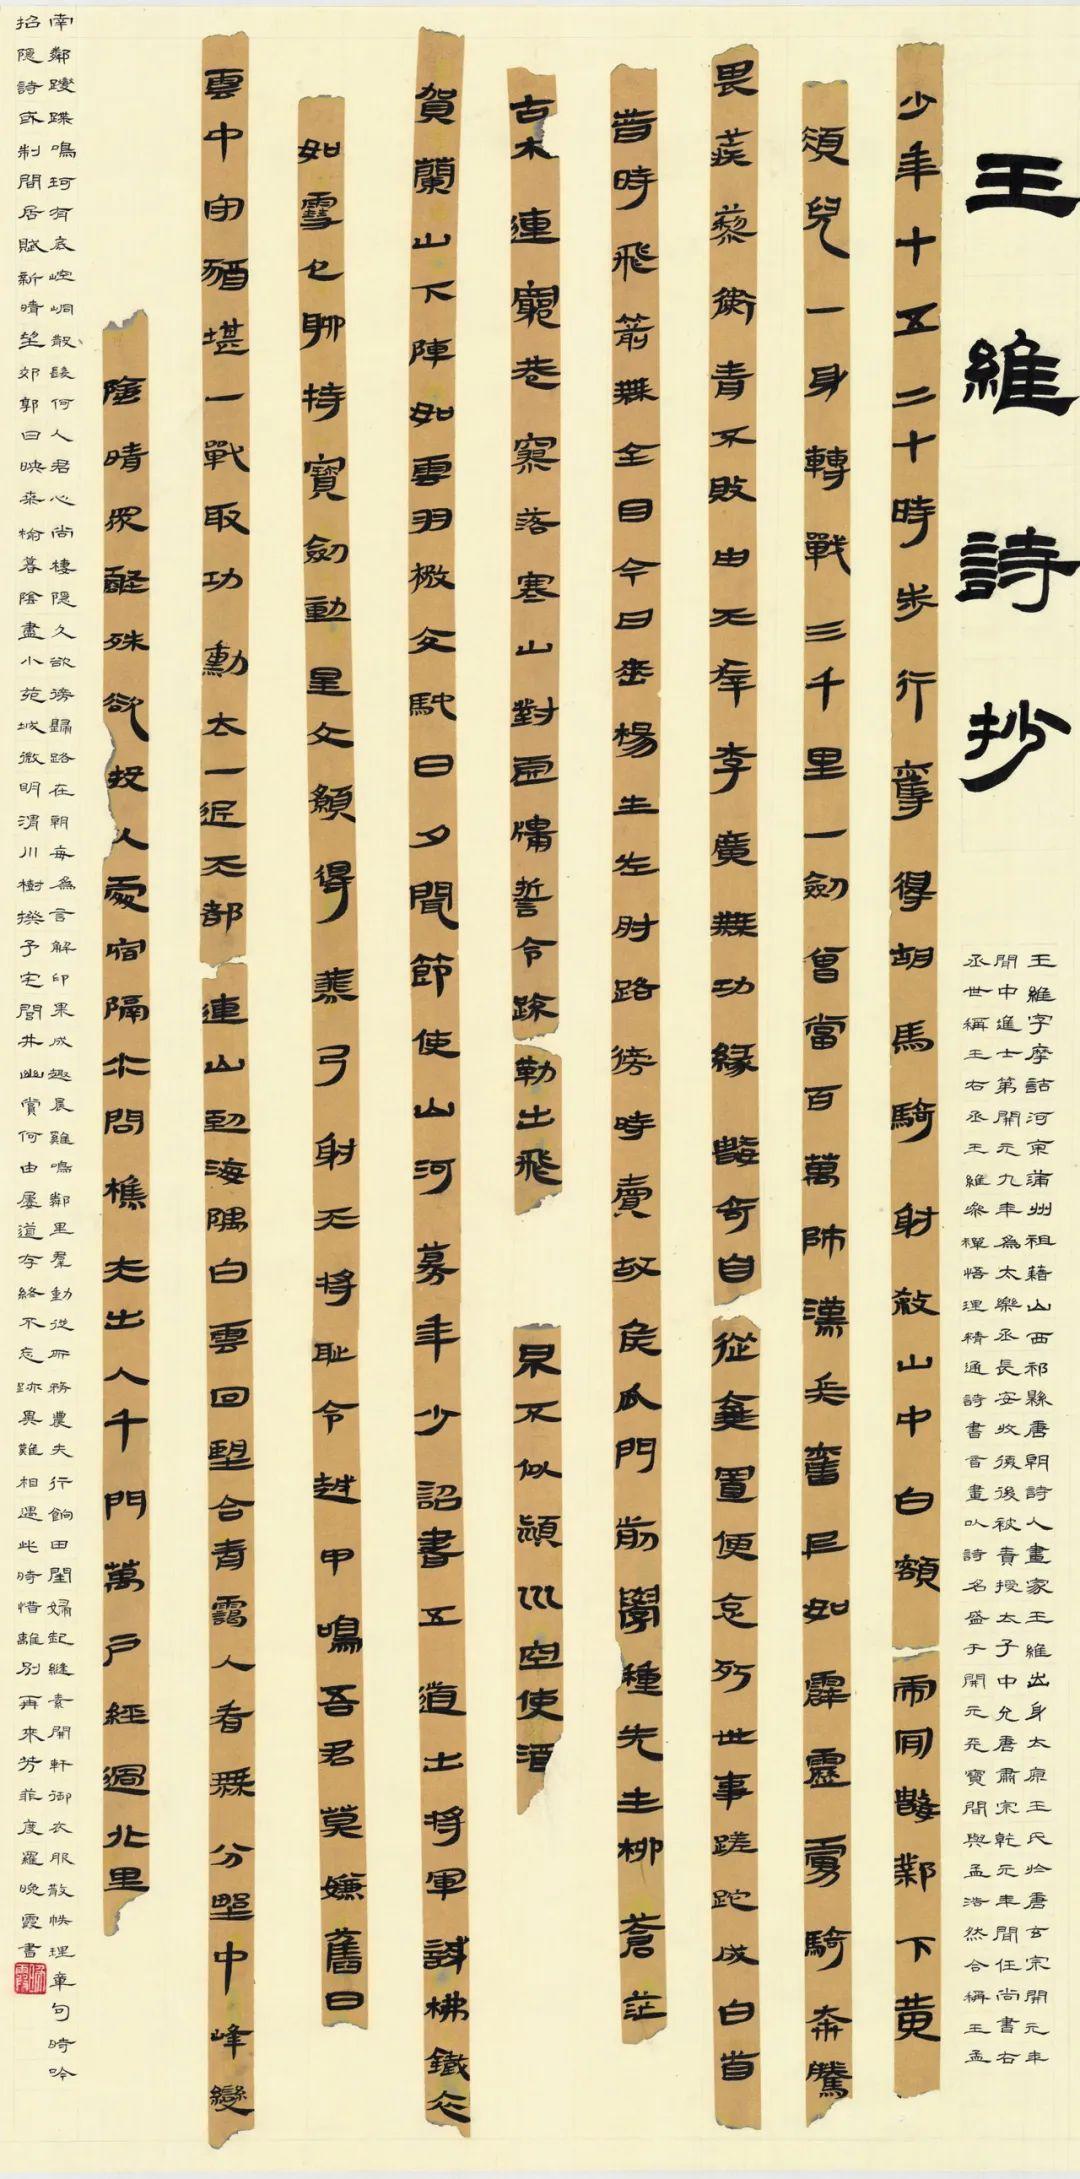 王維詩抄
王維字摩詰河東蒲州祖籍山西祁縣唐朝詩人畫家王維出身太原王氏於唐玄宗開元年
間中進士第開元九年為太樂丞長安收復後被責授太子中允唐肅宗乾元年間任尚書右
丞世稱王右丞王維參禪悟理精通詩書音畫以詩名盛于開元天寶間與孟浩然合稱王孟
少年十五二十時步行奪得胡馬騎射殺山中白額虎肯數鄴下黃
須兒一身轉戰三千里一劍曾當百萬師漢兵奮迅如霹靂虜騎奔騰
畏蒺藜衛青不敗由天幸李廣無功緣數奇自從棄置便衰朽世事蹉跎成白首
昔時飛箭無全目今日垂楊生左肘路傍時賣故侯瓜門前學種先生柳蒼茫
古木連窮巷寥落寒山對虛牖誓令疏勒出飛泉不似潁川空使酒
賀蘭山下陣如雲羽檄交馳日夕聞節使山河募年少詔書五道出將軍試拂鐵衣
如雪色聊持寶劍動星文願得燕弓射天將恥令越甲鳴吾君莫嫌舊日
雲中守猶堪一戰取功勳太一近天都連山到海隅白雲回望合青靄入看無分野中峰變
陰晴眾壑殊欲投人處宿隔水問樵夫出入千門萬戶經過北里
南鄰躞蹀鳴珂有底崆峒散髮何人君心尚棲隱久欲傍歸路在朝每為言解印果成趣晨雞鳴鄰里羣動從所務農夫行餉田閨婦起縫素開軒御衣服散帙理章句時吟
招隱詩或制閒居賦新晴望郊郭日映桑榆暮陰盡小苑城微明渭川樹揆予宅閭井幽賞何由屢道存終不忘跡異難相遇此時惜離別再來芳菲度羅晚霞書